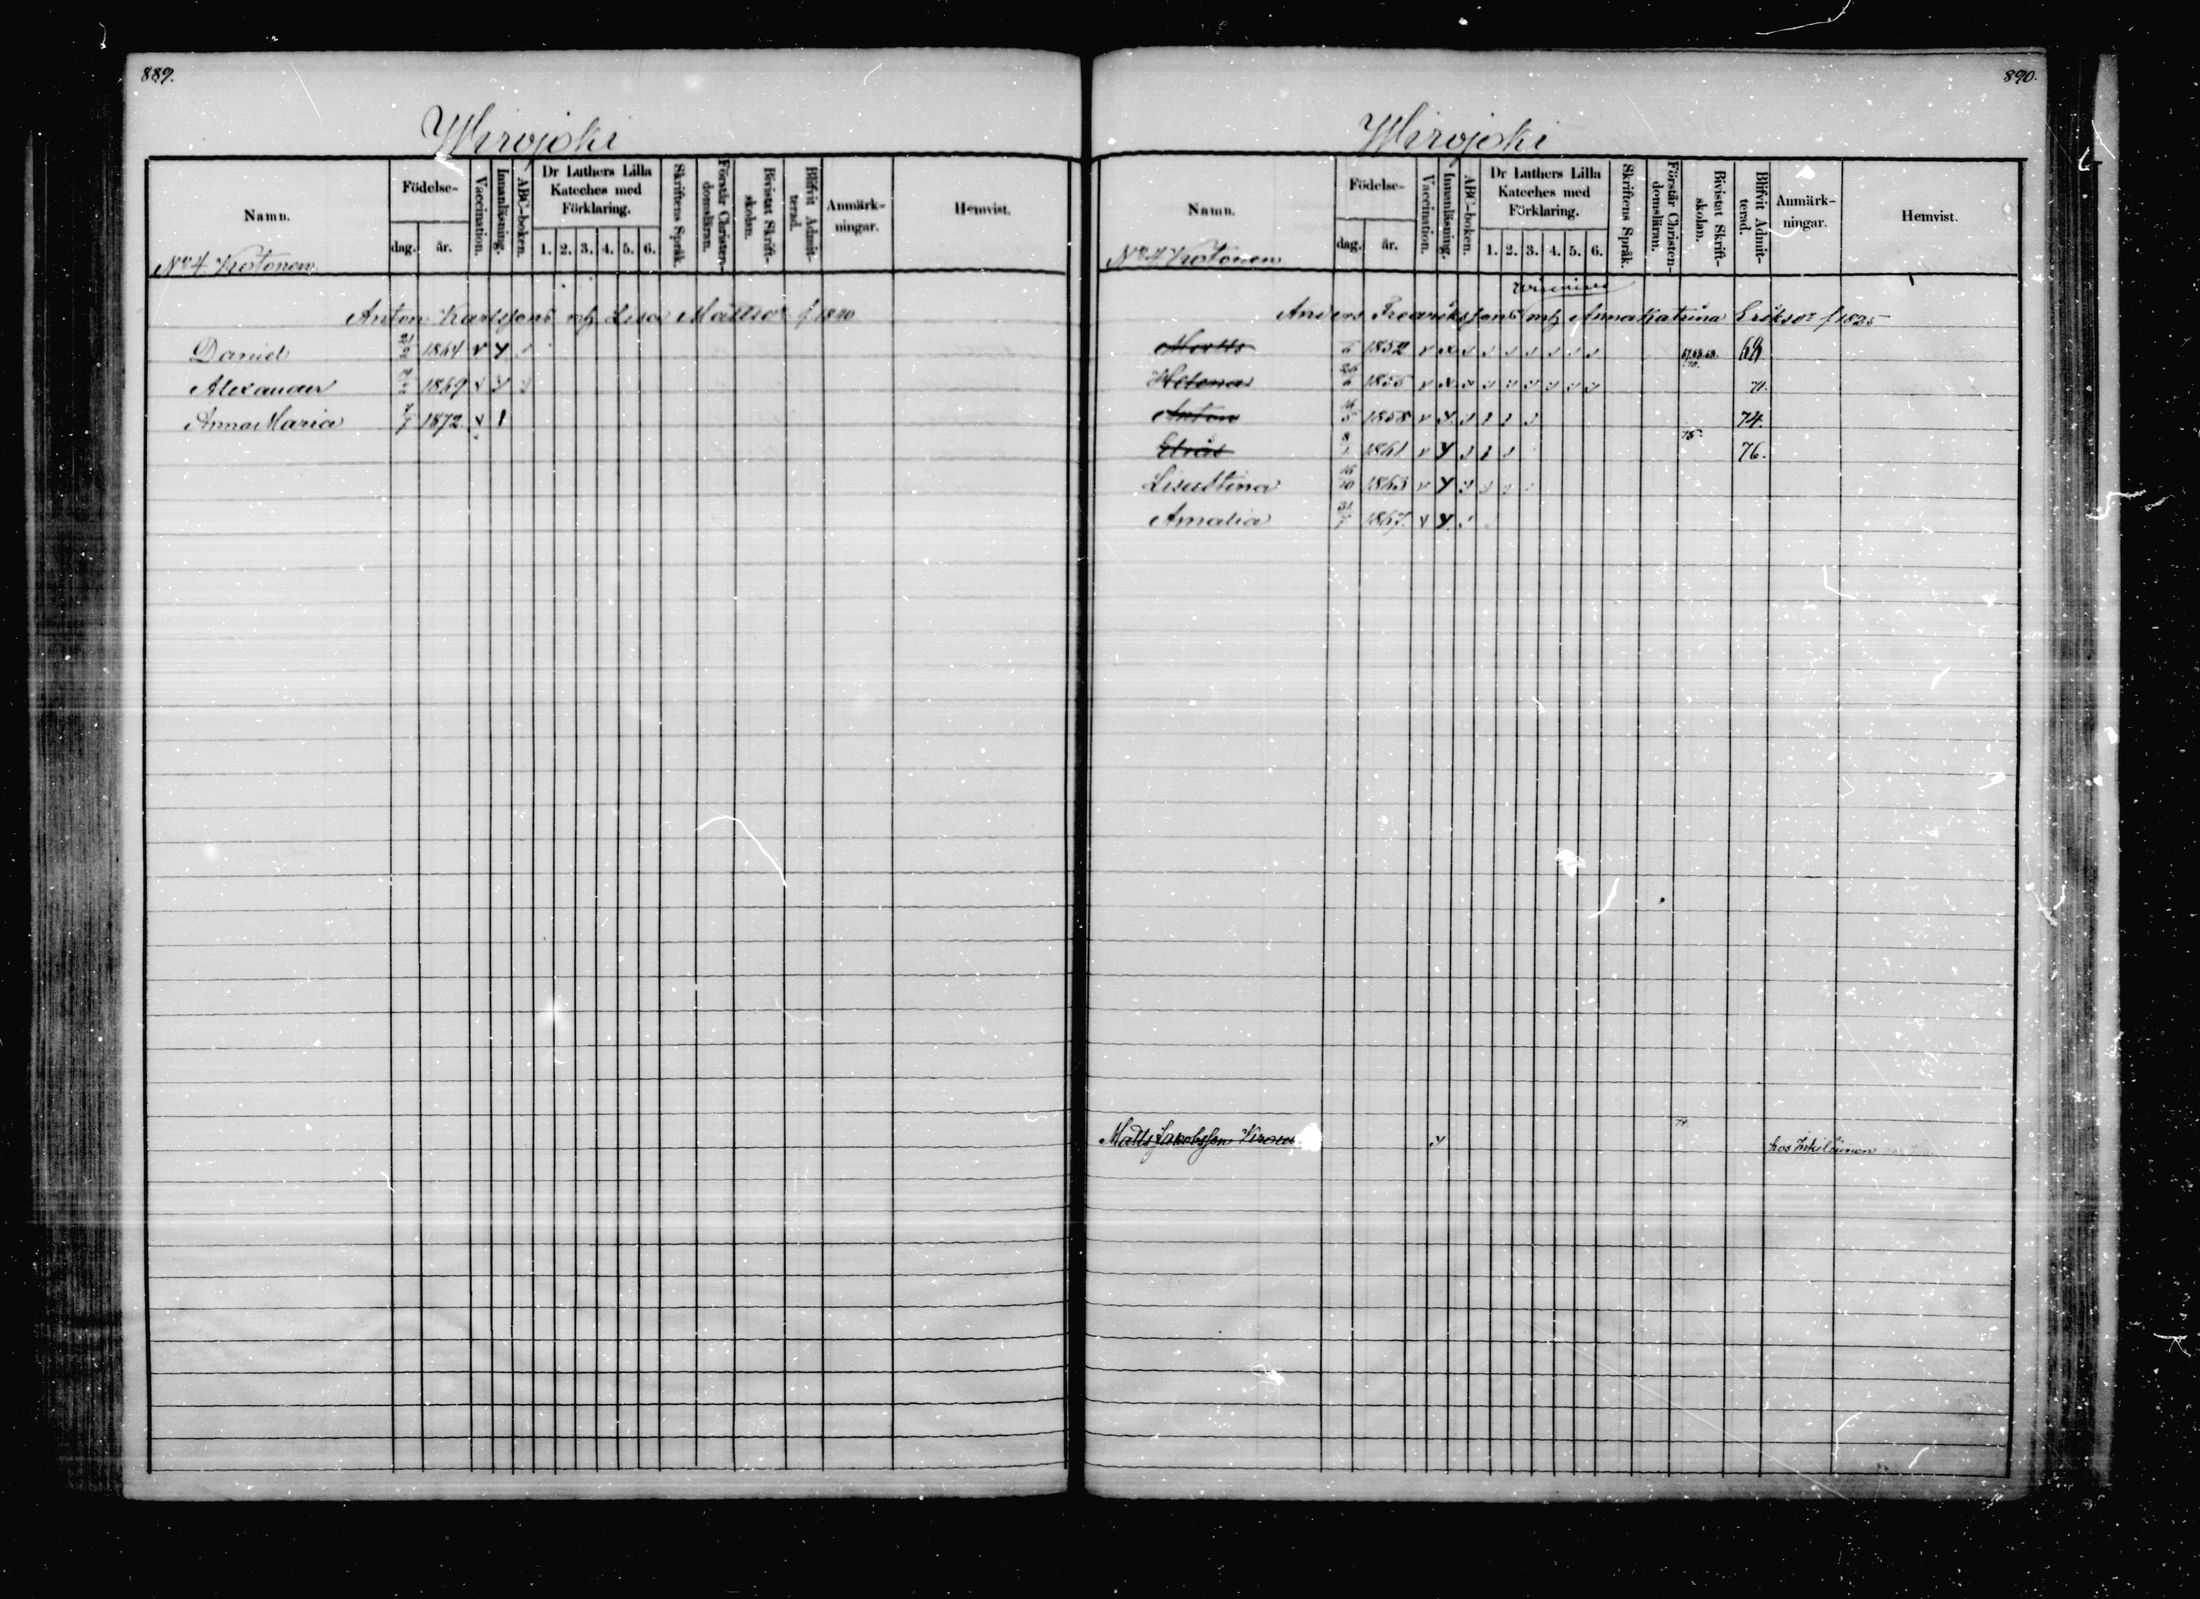 889.
Wirojoki
Namn.
Födelse-
dag.
år.
Vaccination.
Innanläsning.
ABC-boken.
Dr Luthers Lilla
Kateches med
Förklaring.
1. 2. 3. 4. 5. 6.
Skriftens Språk.
Förstår Christen-
domsläran.
Bivistat Skrift-
skolan.
Blifvit Admit-
terad.
Anmärk-
ningar.
Hemvist.
No 4 Krotonen
Anton Karlssons Lisa f 1840
Daniel 21/2 1864 v y
Alexander 7/2 1869 v y
Anna Maria 7/7 1872 v 1
890.
Wirojoki
Namn.
Födelse-
dag.
år.
Vaccination.
Innanläsning.
ABC-boken.
Dr Luthers Lilla
Kateches med
Förklaring.
1. 2. 3. 4. 5. 6.
Skriftens Språk.
Förstår Christen-
domsläran.
Bivistat Skrift-
skolan.
Blifvit Admit-
terad.
Anmärk-
ningar.
Hemvist.
No 4 Krotonen
Anders Fredrikssons Anna Katrina Eriksdr f 1825
1852
Helena 1855 71.
Anton 16/5 1858 74.
1861 75 76.
Lisa Stina 16/10 1863
Amalia 1867
Matts Jakobsson y 74. hos